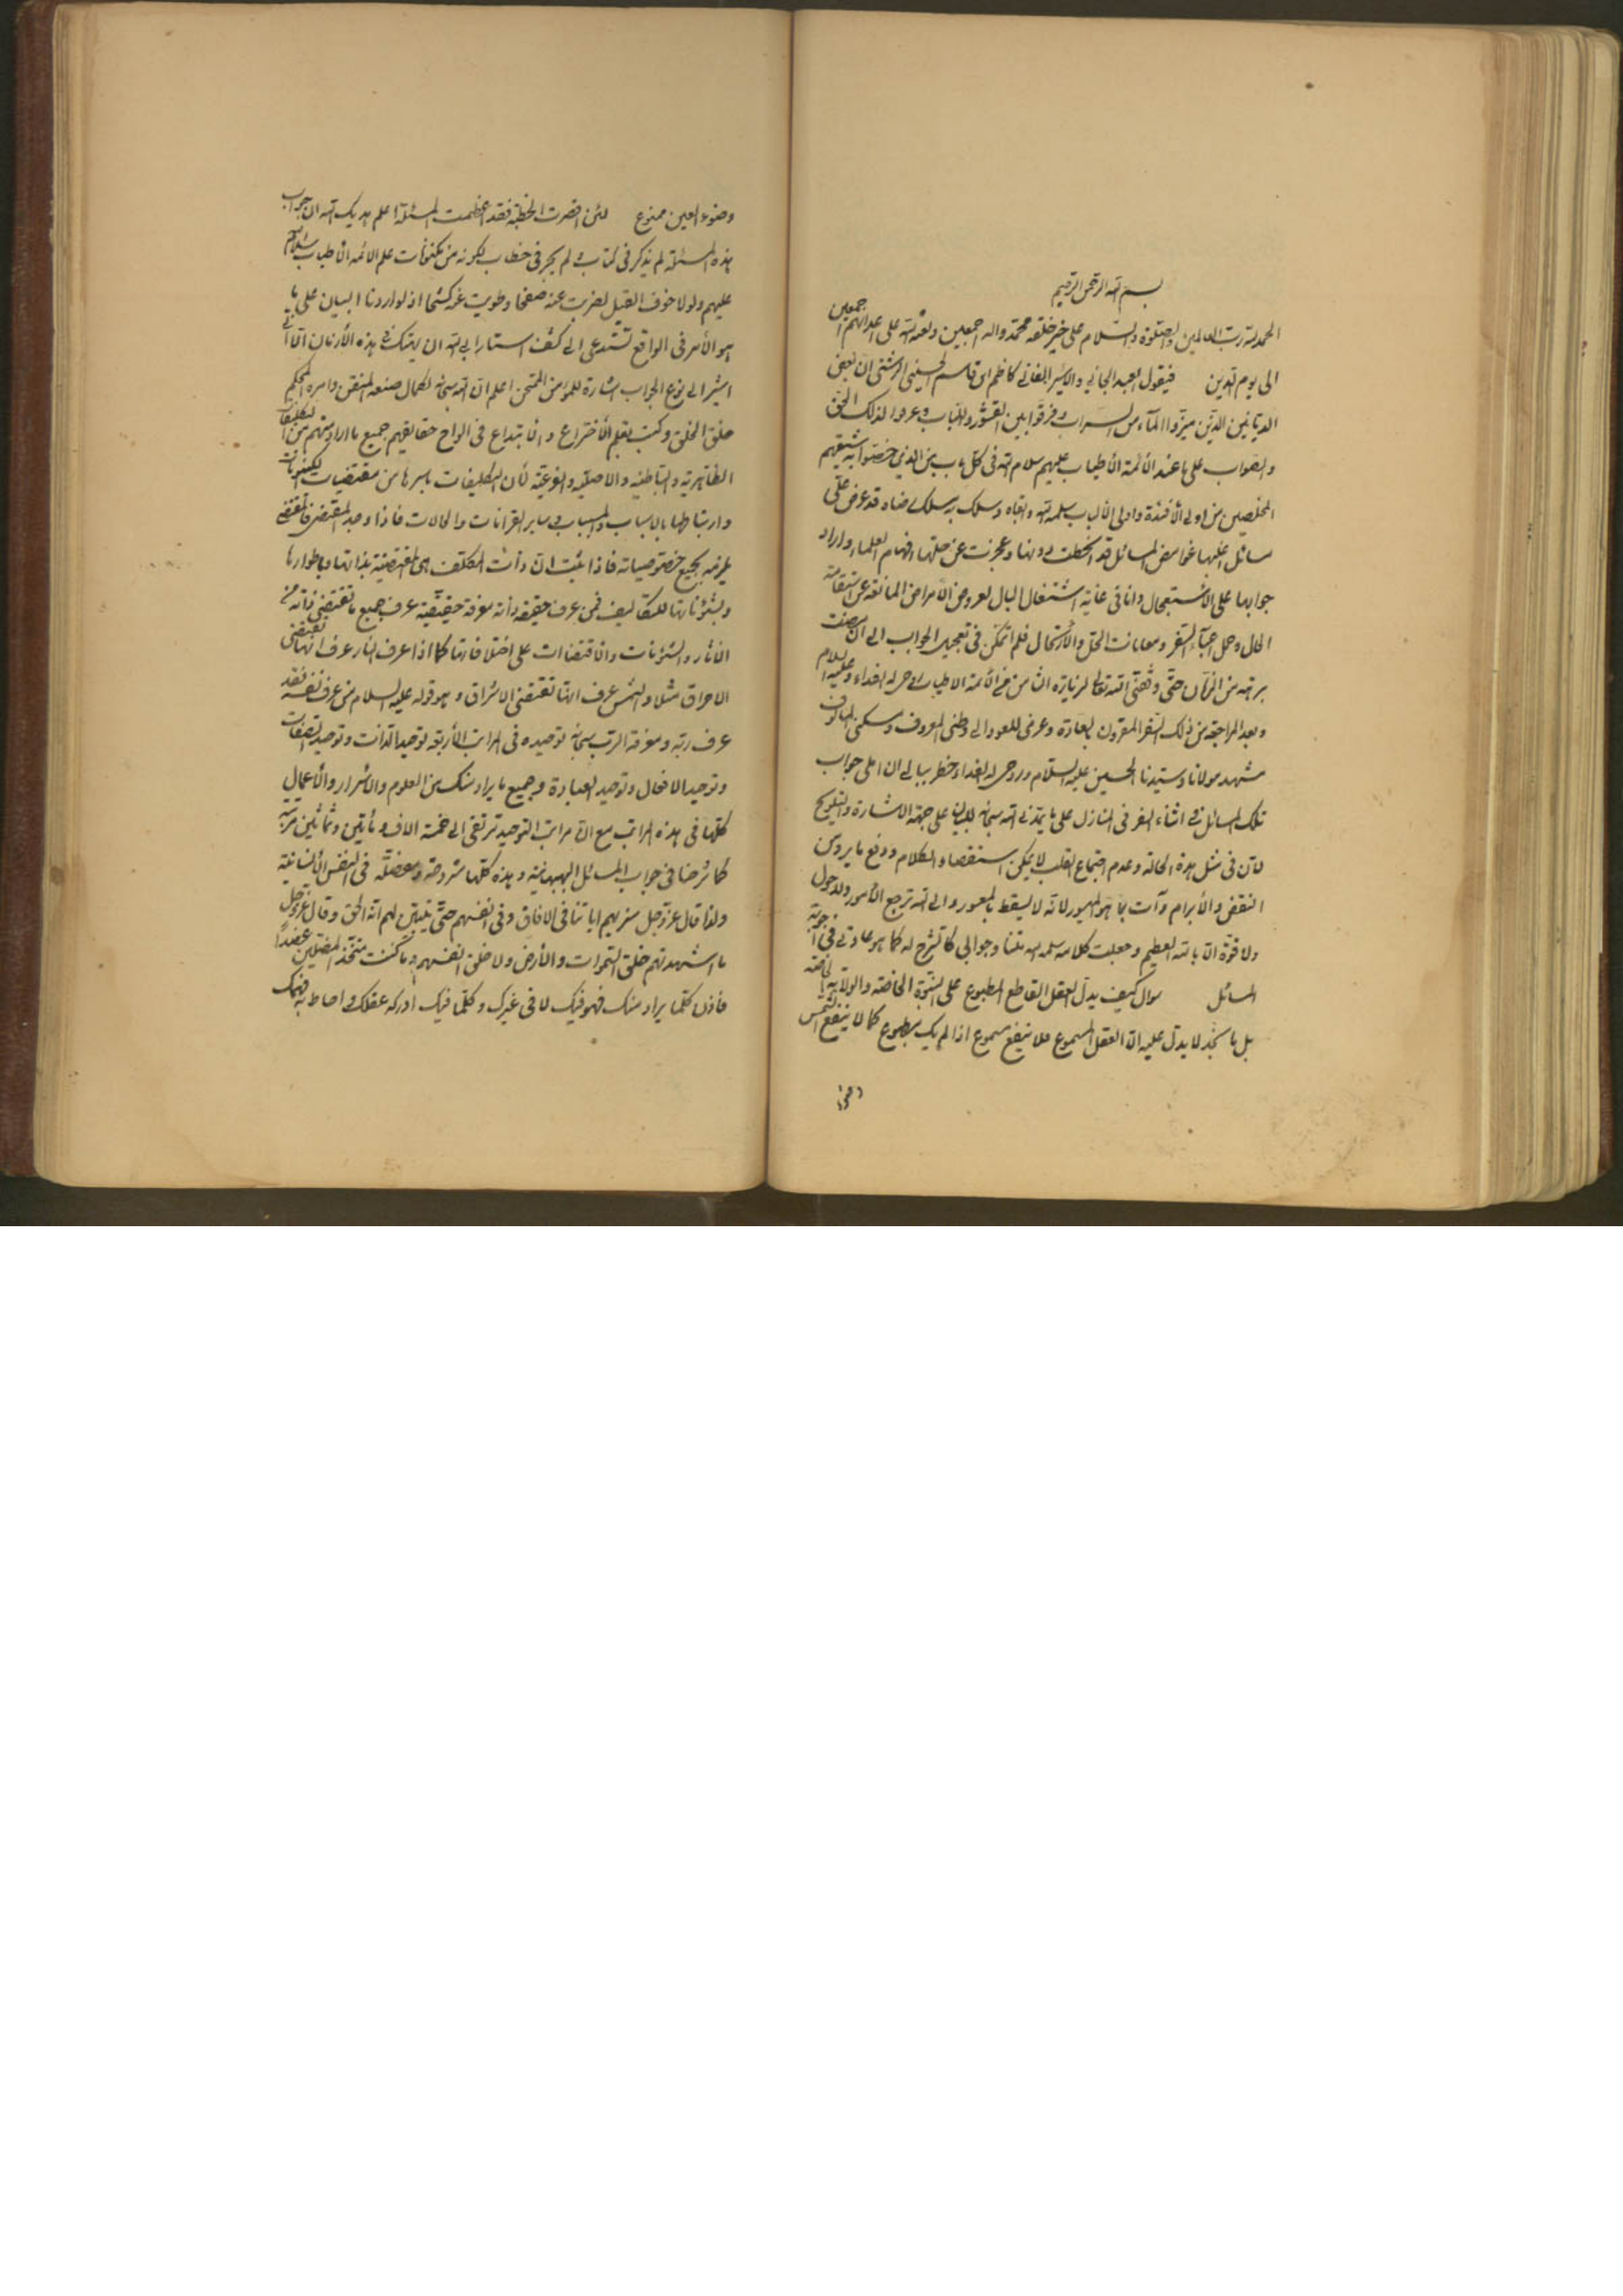 بسم الله الرحمن الرحيم
الحمد لله رب العالمين والصلوة والسلام على خير خلقه محمد واله اجمعين ولعنة الله على اعدائهم اجمعين
الى يوم الدين فيقول العبد الجاني والاسير الفاني كاظم ابن قاسم الحسيني الرشتي ان بعض
الديانين الذين ميزوا الماء من السراب وفرقوا بين القشور واللباب وعرفوا لذلك الحق
والصواب على ما عند الأئمة الأطياب عليهم سلام الله في كل باب من الذين خصتوا به شيعتهم
المخلصين من اولى الأفئدة واولى الألباب سلمه الله وابقاه وسلك به مسلك رضاه قد عرض علي
مسائل اغلبها غوامض المسائل قد انحطت دونها وعجزت عن حلها افهام العلماء واراد
جوابها على الاستعجال وانا في غاية اشتغال البال لعروض الأمراض المانعة عن استقامة
الحال وحمل اعباء السفر ومعانات الحل والارتحال فلم اتمكن في تعجيل الجواب الى ان مضت
برهة من الزمان حتى وفقني الله تعالى لزيارة ثامن الأئمة الاطياب روحي له الفداء وعليه السلام
وبعد المراجعة من ذلك السفر المقرون بالسعادة وعزمي للعود الى وطني المعروف ومسكني المألوف
مشهد مولانا وسيدنا الحسين عليه السلام وروحي له الفداء خطر ببالي ان املي جواب
تلك المسائل في اثناء السفر في المنازل على ما يمدني الله سبحانه للبيان على جهة الاشارة والتلويح
لأن في مثل هذه الحالة وعدم اجتماع القلب لا يمكن استقصاء الكلام ودفع ما يرد من
النقض والأبرام وآت بما هو الميسور لانه لا يسقط بالمعسور والى الله ترجع الأمور ولا حول
ولا قوة الا بالله العظيم وجعلت كلامه سلمه الله متنا وجوابي كالشرح له كما هو عادتي في اجوبة
المسائل سؤال كيف يدل العقل القاطع المطبوع على النبوة الخاصة والولاية الخاصة
بل ما نجد لا يدل عليه الا العقل المسموع فلا ينفع مسموع اذا لم يك مطبوع كما لا ينفع الشمس
وضوء
وضوء العين ممنوع لئن اقصرت الخطبة فقد اعظمت المسئلة اعلم ايدك الله ان جواب
هذه المسئلة لم يذكر في كتاب ولم يجر في خطاب لكونه من مكنونات علم الائمة الأطياب سلام الله
عليهم ولولا خوف القيل لضربت عنه صفحا وطويت عنه كشحا اذ لو اردنا البيان على ما
هو الأمر في الواقع تستدعي الى كشف استار ابى الله ان يهتك في هذه الأزمان الا اني
اشير الى نوع الجواب اشارة للمؤمن الممتحن اعلم ان الله سبحانه لكمال صنعه المتقن وامره المحكم
خلق الخلق وكتب بقلم الاختراع والابتداع في الواح حقايقهم جميع ما اراد منهم من التكليفات
الظاهرية والباطنية والاصلية والفرعية لأن التكليفات باسرها من مقتضيات الكينونات
وارتباطها بالاسباب والمسببات في ساير القرانات والحالات فاذا وجد المقتضي فالمقتضى
يلزمه بجميع خصوصياته فاذا ثبت ان ذات المكلف هي المقتضية بذاتها وباطوارها
وبشؤناتها للتكاليف فمن عرف حقيقة ذاته معرفة حقيقية عرف جميع ما تقتضي ذاته من
الاثار والشؤنات والاقتضاات على اختلافاتها كما اذا عرف النار عرف انها تقتضي
الاحراق مثلا والشمس عرف انها تقتضي الاشراق وهو قوله عليه السلام من عرف نفسه فقد
عرف ربه ومعرفة الرب سبحانه توحيده في المراتب الأربعة توحيد الذات وتوحيد الصفات
وتوحيد الافعال وتوحيد العبادة وجميع ما يراد منك من العلوم والاسرار والأعمال
كلها في هذه المراتب مع ان مراتب التوحيد ترتقي الى خمسة الاف ومأتين وثمانين مرتبة
كما شرحنا في جواب المسائل البهبهانية وهذه كلها مشروحة ومفصلة في النفس الأنسانية
ولذا قال عز وجل سنريهم اياتنا في الافاق وفي انفسهم حتى يتبين لهم انه الحق وقال عز وجل
ما اشهدتهم خلق السموات والأرض ولا خلق انفسهم وما كنت متخذ المضلين عضدا
فاذن كلما يراد منك فهو فيك لا في غيرك وكلما فيك ادركه عقلك واحاط به فهمك